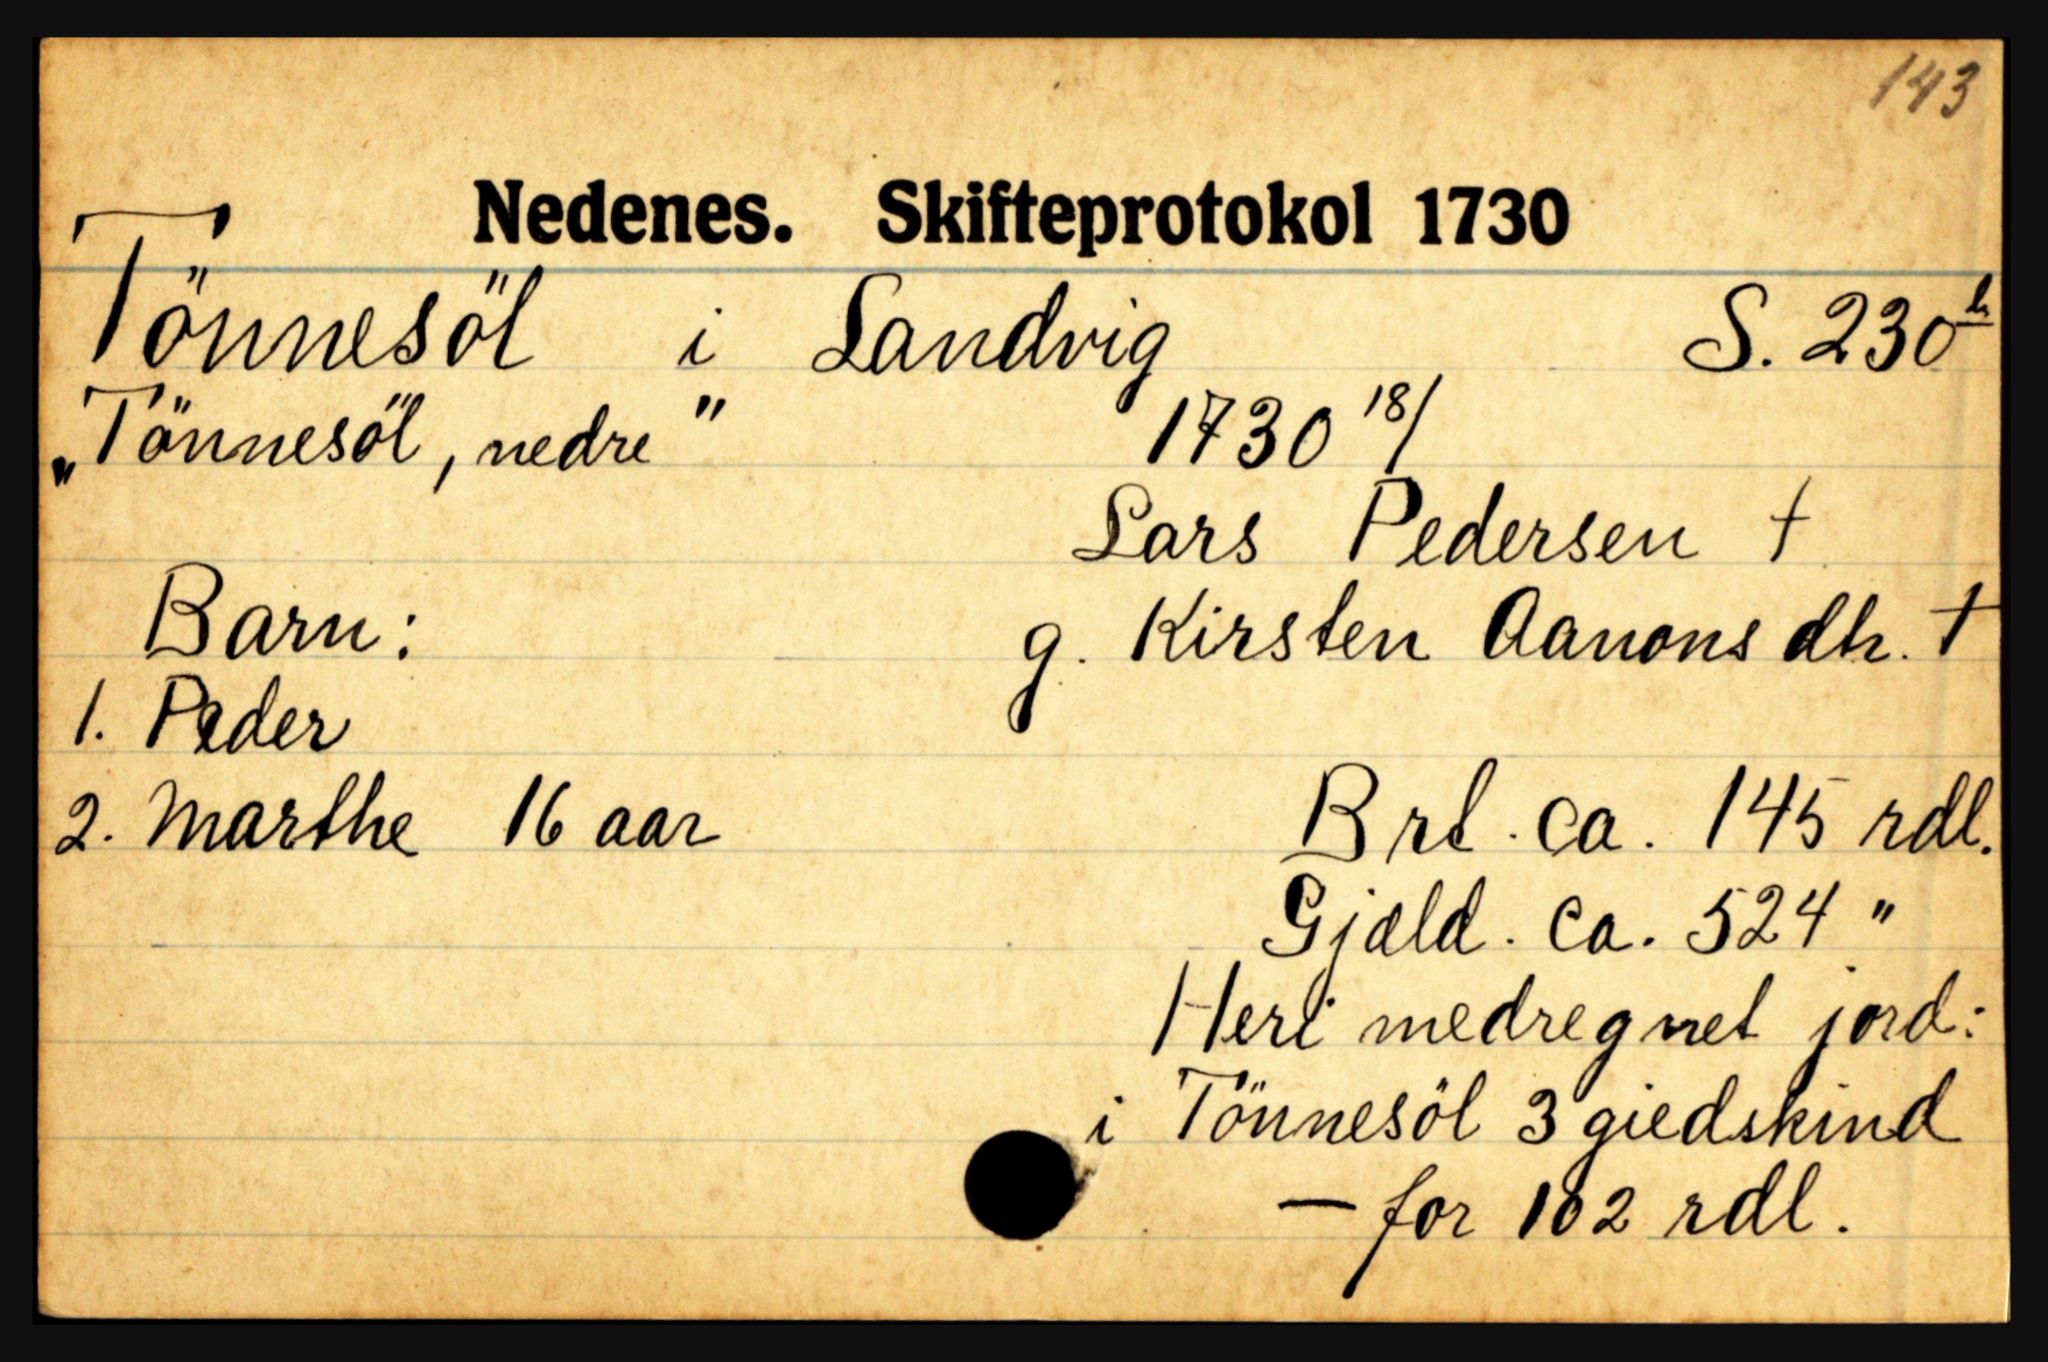 143
Nedenes. Skifteprotokol 1730
Tönnesöl i Landvig S. 230 b
„Tönnesöl, nedre" 1730 18/
Lars Pedersen †
Barn: g. Kirsten Aanons dtr. †
1. Peder
2. Marthe 16 aar Brt. ca. 145 rdl.
Gjæld. ca. 524 "
Heri medregnet jord:
i Tönnesöl 3 giedskind
— for 102 rdl.